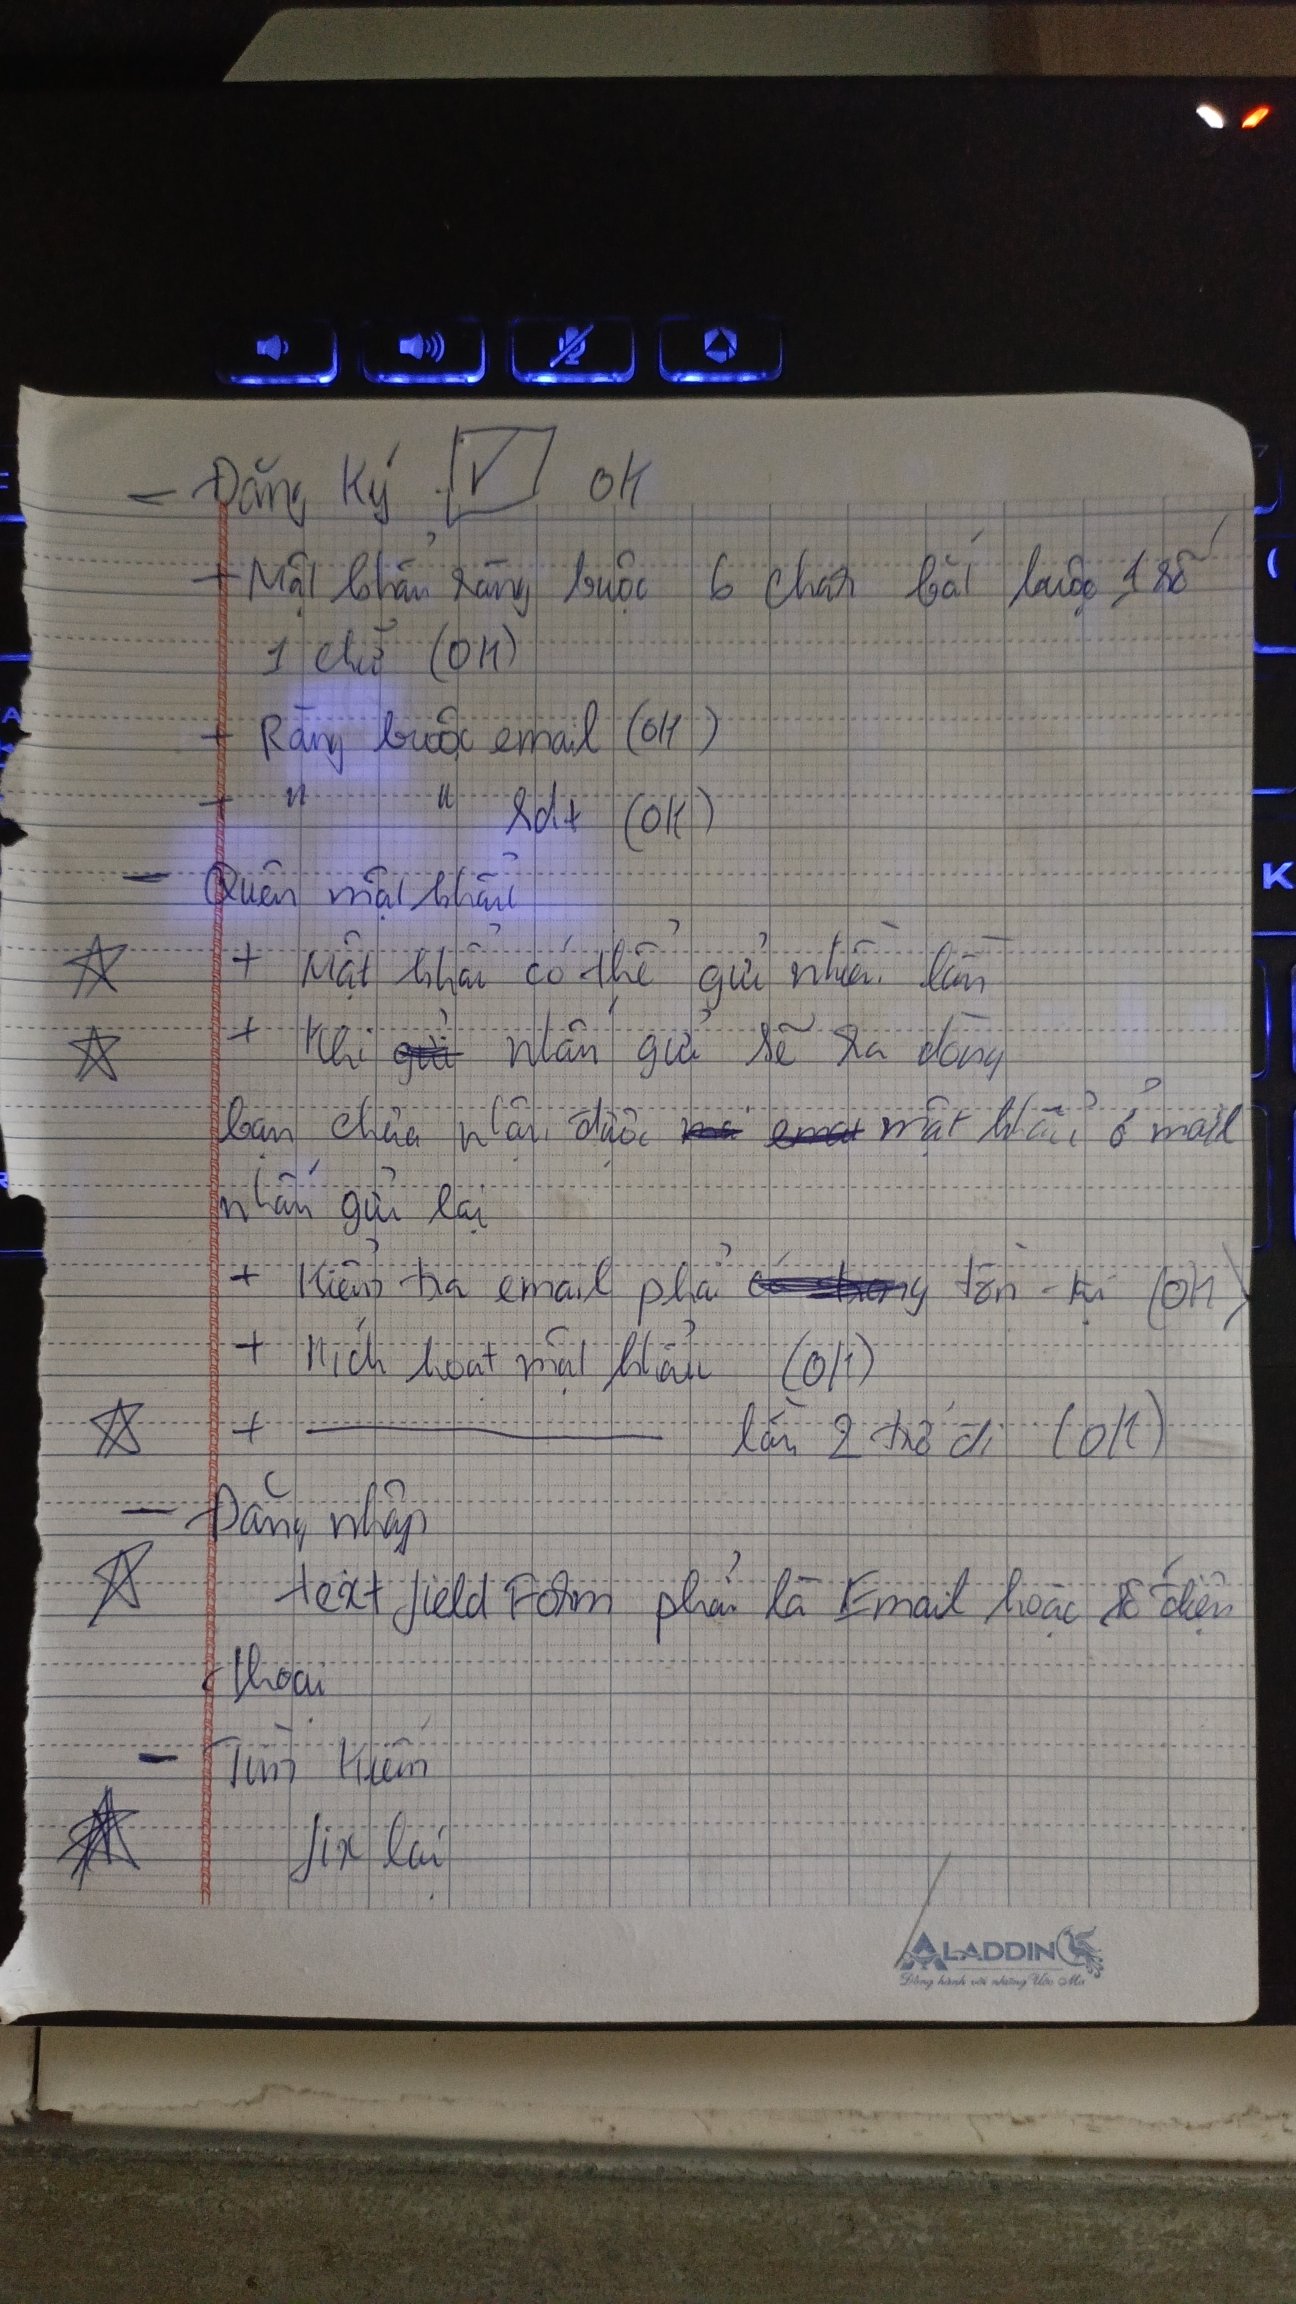 - Đăng Ký ☑ OK
+ Mật khẩu ràng buộc 6 char bắt buộc 1 số
1 chữ (OK)
+ Ràng buộc email (OK)
+ " " sdt (OK)
- Quên mật khẩu
☆ + Mật khẩu có thể gửi nhiều lần
☆ + Khi nhấn gửi sẽ ra dòng
bạn chưa nhận được mật khẩu ở mail
nhấn gửi lại
+ Kiểm tra email phải tồn tại (OK)
+ Kích hoạt mật khẩu (OK)
☆ + ———— lần 2 trở đi (OK)
- Đăng nhập
☆ text field Form phải là Email hoặc số điện
thoại
- Tìm Kiếm
☆ fix lại
ALADDIN
Đồng hành với những Ước Mơ
K